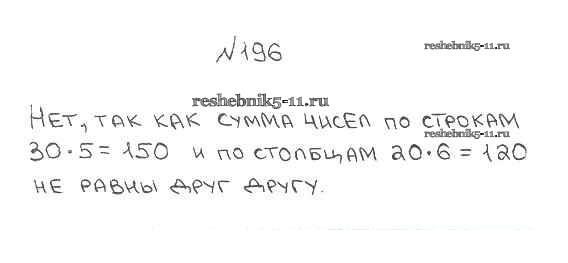 №196
reshebnik5-11.ru
reshebnik5-11.ru
Нет, так как сумма чисел по строкам
reshebnik5-11.ru
30·5=150 и по столбцам 20·6=120
не равны друг другу.